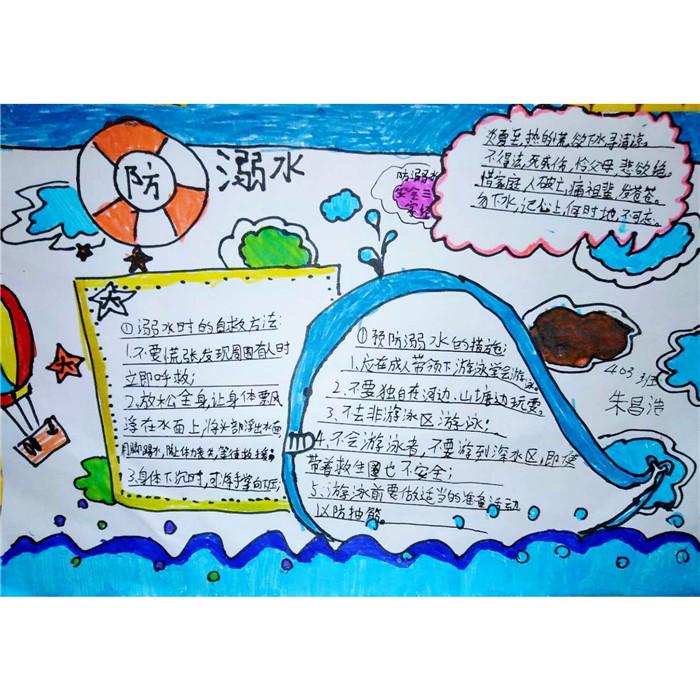 防
溺水
防溺水
安全三
炎夏至,热的慌,欲下水寻清凉。
不得法,死或伤,怜父母,悲欲绝。
惜家庭,人破亡,痛祖辈,发苍苍。
勿下水,记心上,何时地,不可忘。
①溺水时的自救方法:
1.不要慌张发现周围有人时
立即呼救;
2.放松全身,让身体飘
浮在水面上,将头部浮出水面
用脚踢水,防止体力丧失,等待救援;
3.身体下沉时,可将手掌向下压;
①预防溺水的措施:
1.应在成人带领下游泳学会游泳。
2.不要独自在河边、山塘边玩耍。
3.不去非游泳区游泳;
4.不会游泳者,不要游到深水区,即使
带着救生圈也不安全;
5.游泳前要做适当的准备活动
以防抽筋。
403班
朱昌浩